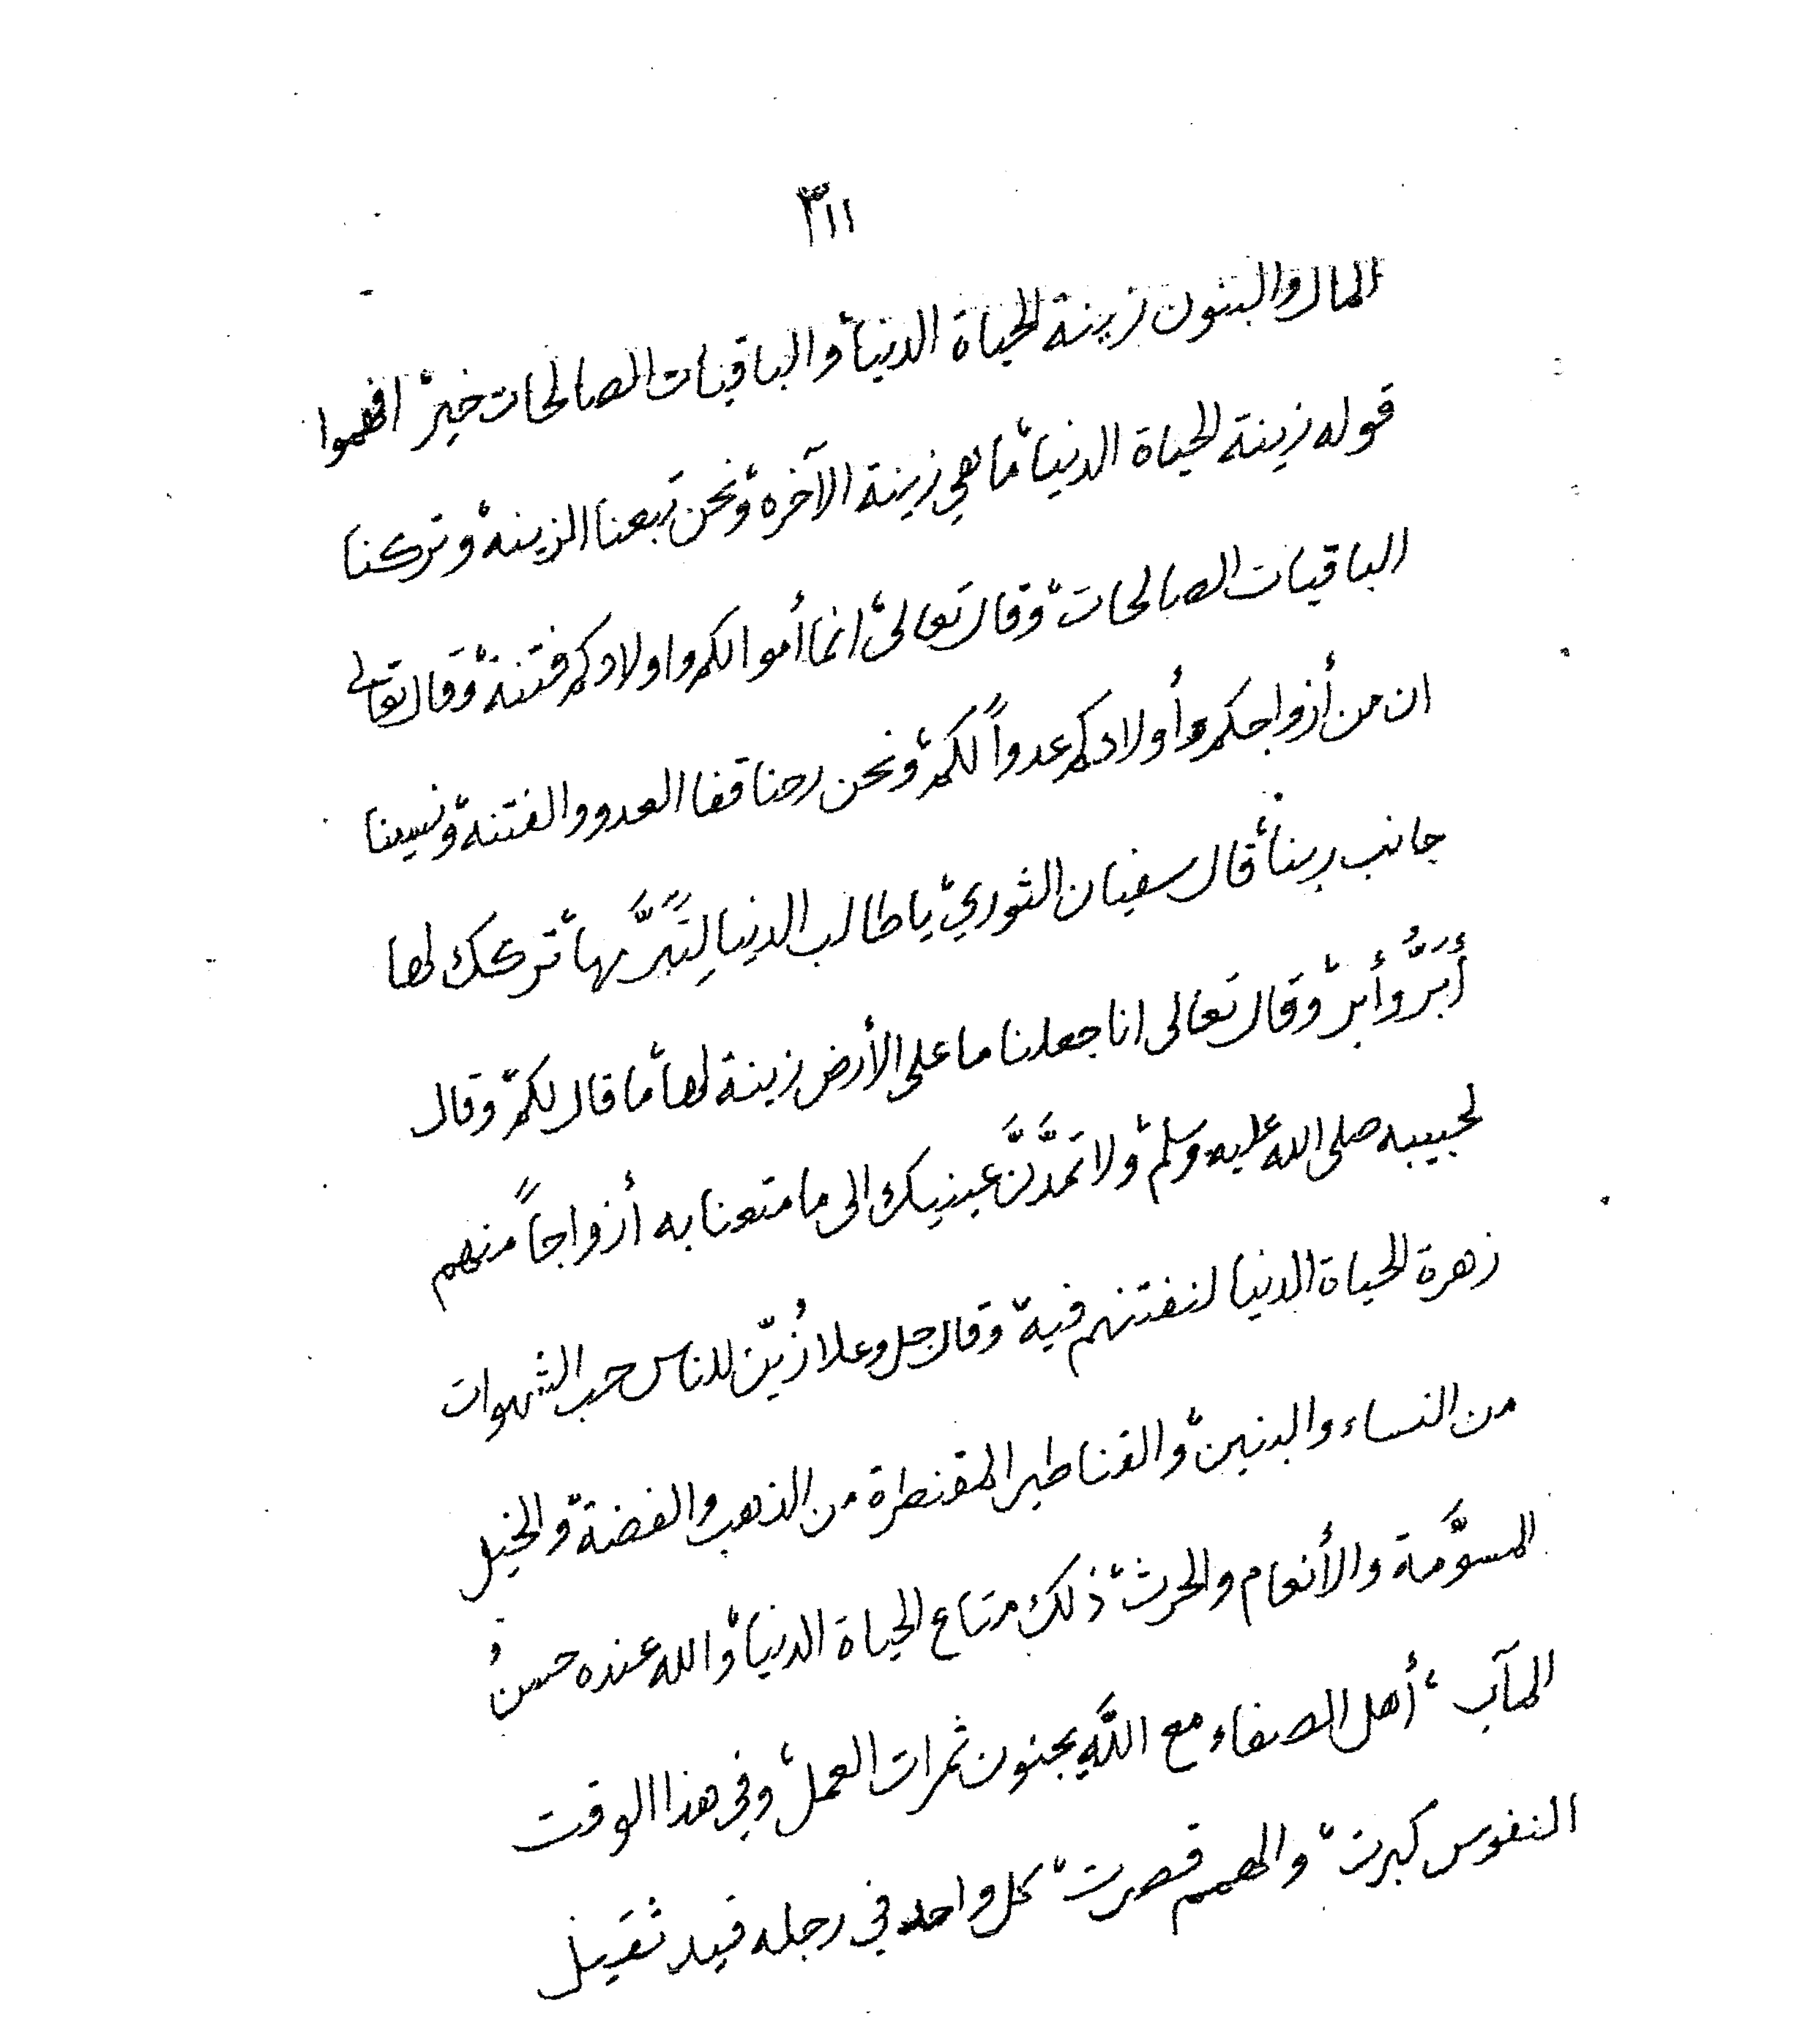 ٣١١
المال والبنون زينة الحياة الدنيا، والباقيات الصالحات خير، افهموا
قوله زينة الحياة الدنيا، ما هي زينة الآخره، ونحن تبعنا الزينه، وتركنا
الباقيات الصالحات، وقال تعالى، انما أموالكم واولادكم فتنة، وقال تعالى
ان من أزواجكم وأولادكم عدواً لكم، ونحن رحنا قفا العدو والفتنه، ونسينا
جانب ربنا، قال سفيان الثوري، يا طالب الدنيا لِتَبَرَّ بها، تركك لها
أَبَرُّ وأبر، وقال تعالى انا جعلنا ما على الأرض زينة لها، ما قال لكم، وقال
لحبيبه صلى الله عليه وسلم، ولا تمدَّنَّ عينيك الى ما متعنا به أزواجاً منهم
زهرة الحياة الدنيا لنفتنهم فيه، وقال جل وعلا زُيّن للناس حب الشهوات
من النساء والبنين، والقناطير المقنطرة من الذهب والفضة، والخيل
المسوَّمة والأنعام والحرث، ذلك متاع الحياة الدنيا، والله عنده حسنُ
المآب، أهل الصفاء مع الله يجنون ثمرات العمل، وفي هذا الوقت
النفوس كبرت، والهمم قصرت، كل واحد في رجله قيد ثقيل